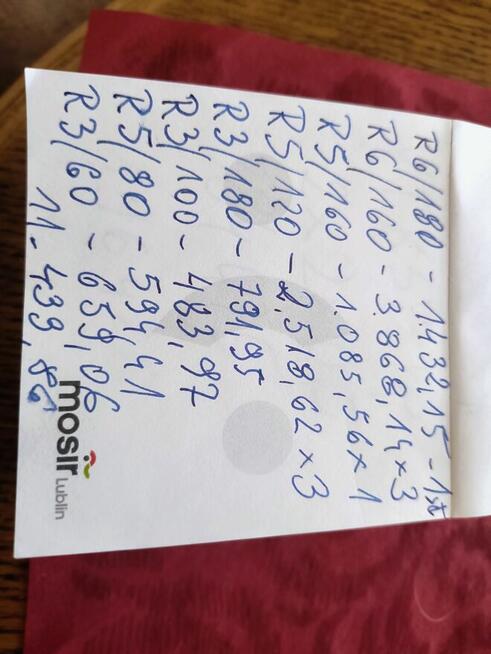 R6/180 - 1432,15 - 1x
R6/160 - 3.868,14 x 3
R5/160 - 1.085,56 x 1
R5/120 - 2,518,62 x 3
R3/180 - 791,95
R3/100 - 483,97
R5/80 - 594,41
R3/60 - 659,06
11.439,86
mosir
Lublin